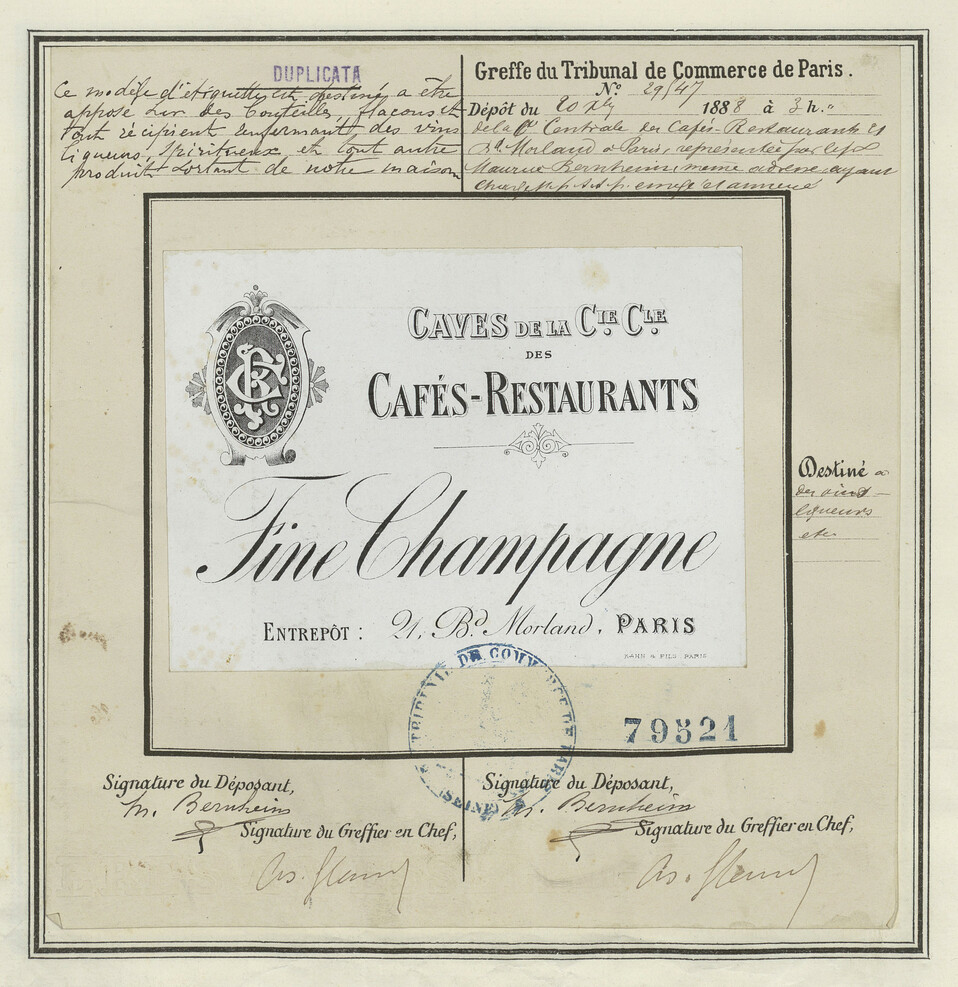 DUPLICATA
Ce modèle d'étiquette est destiné a être
apposé sur des bouteilles, flacons et
tout récipient renfermant des vins
liqueurs, spiritueux et tout autre
produit sortant de notre maison
Greffe du Tribunal de Commerce de Paris.
N° 29/47
Dépôt du 20 1888 à 3 h.
de la Cie Centrale des Cafés-Restaurants 21
Bd Morland à Paris, représentée par le sr
Maurice Bernheim, même adresse, ayant
CAVES DE LA CIE CLE
DES
CAFÉS-RESTAURANTS
Fine Champagne
ENTREPÔT : 21, Bd Morland, PARIS
& FILS PARIS
Destiné a
des vins
liqueurs
etc
TRIBUNAL DE COMMERCE DE PARIS
(SEINE)
79521
Signature du Déposant,
M. Bernheim
Signature du Greffier en Chef,
Signature du Déposant,
M. Bernheim
Signature du Greffier en Chef,